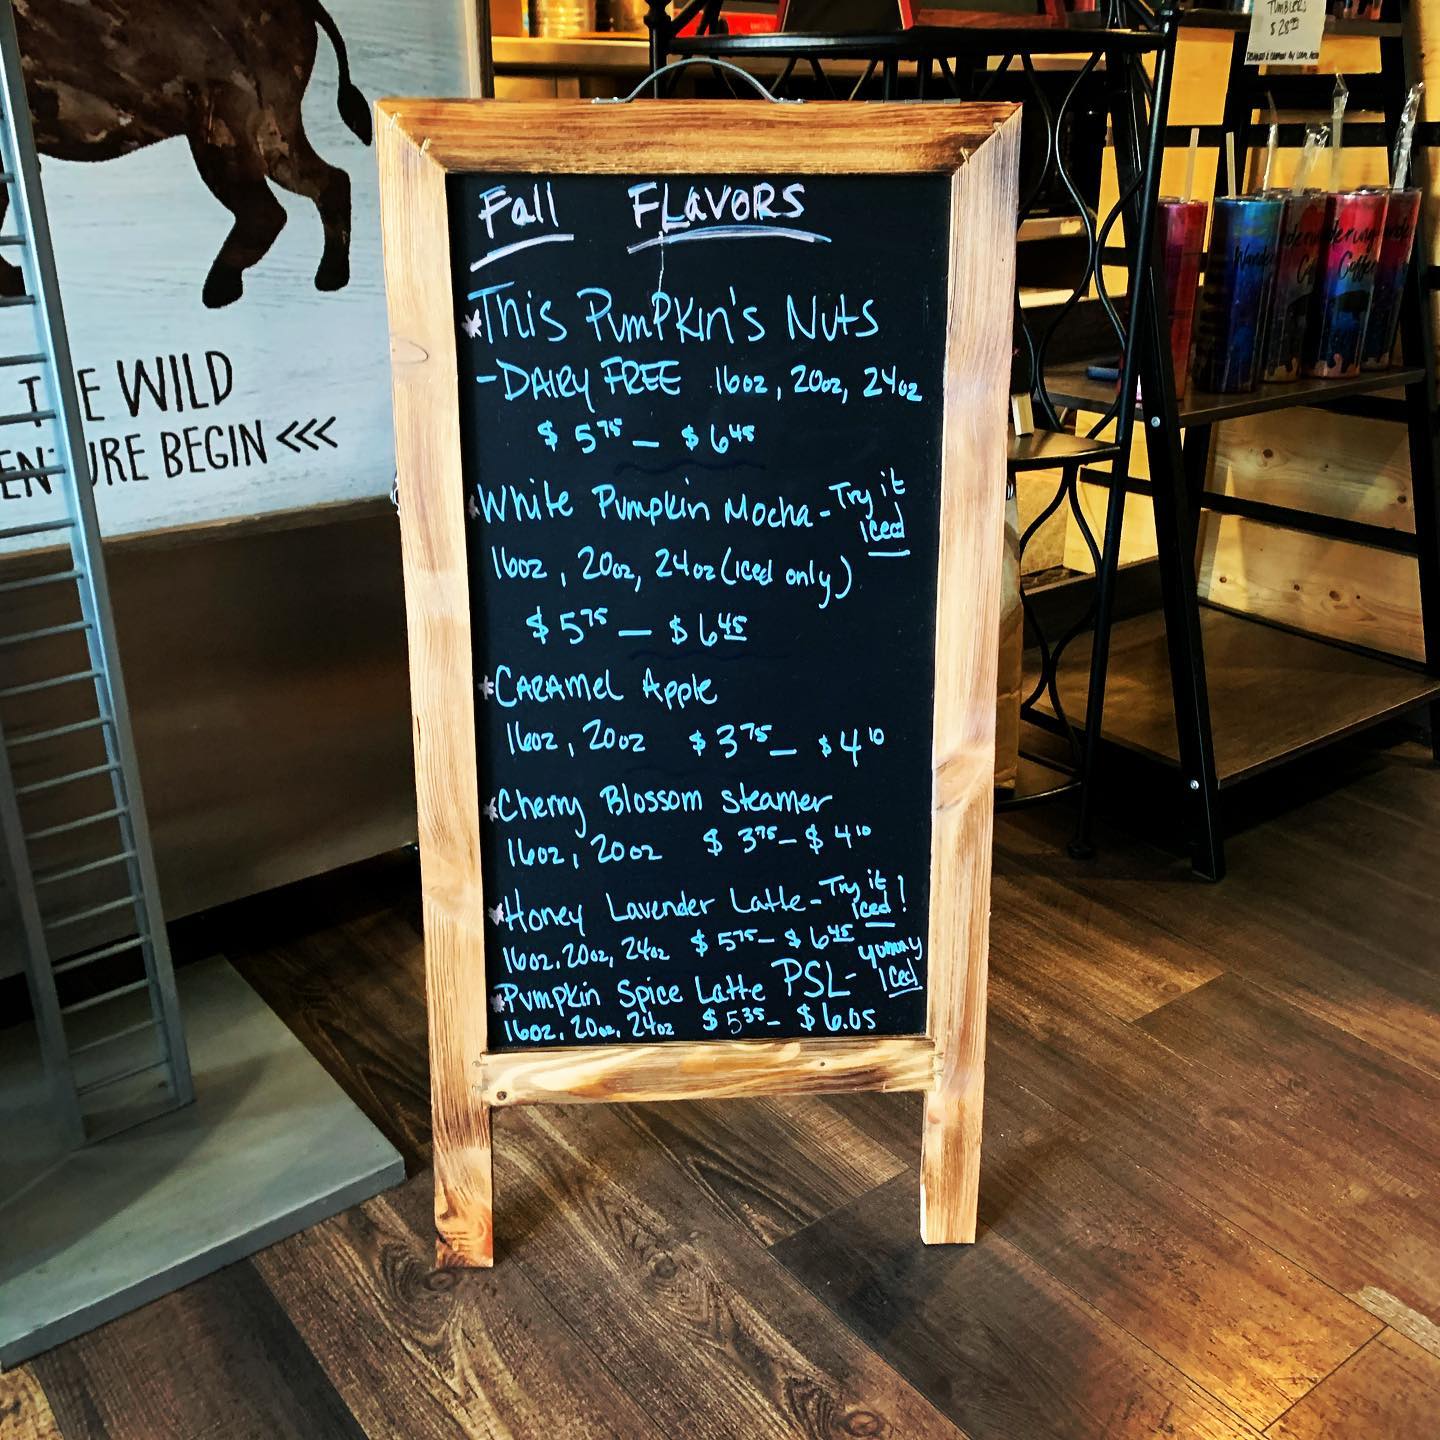 Fall FLAVORS
*This Pumpkin's Nuts
-DAIRY FREE 16oz, 20oz, 24oz
$5.75 — $6.45
*White Pumpkin Mocha - Try it Iced
16oz, 20oz, 24oz (iced only)
$5.75 — $6.45
*CARAMEL Apple
16oz, 20oz $3.75 — $4.10
*Cherry Blossom Steamer
16oz, 20oz $3.75 — $4.10
*Honey Lavender Latte - Try it Iced!
16oz, 20oz, 24oz $5.75 — $6.45
*Pumpkin Spice Latte PSL - yummy Iced
16oz, 20oz, 24oz $5.35 — $6.05
THE WILD
BEGIN <<<
TUMBLERS
Wander
Coffee